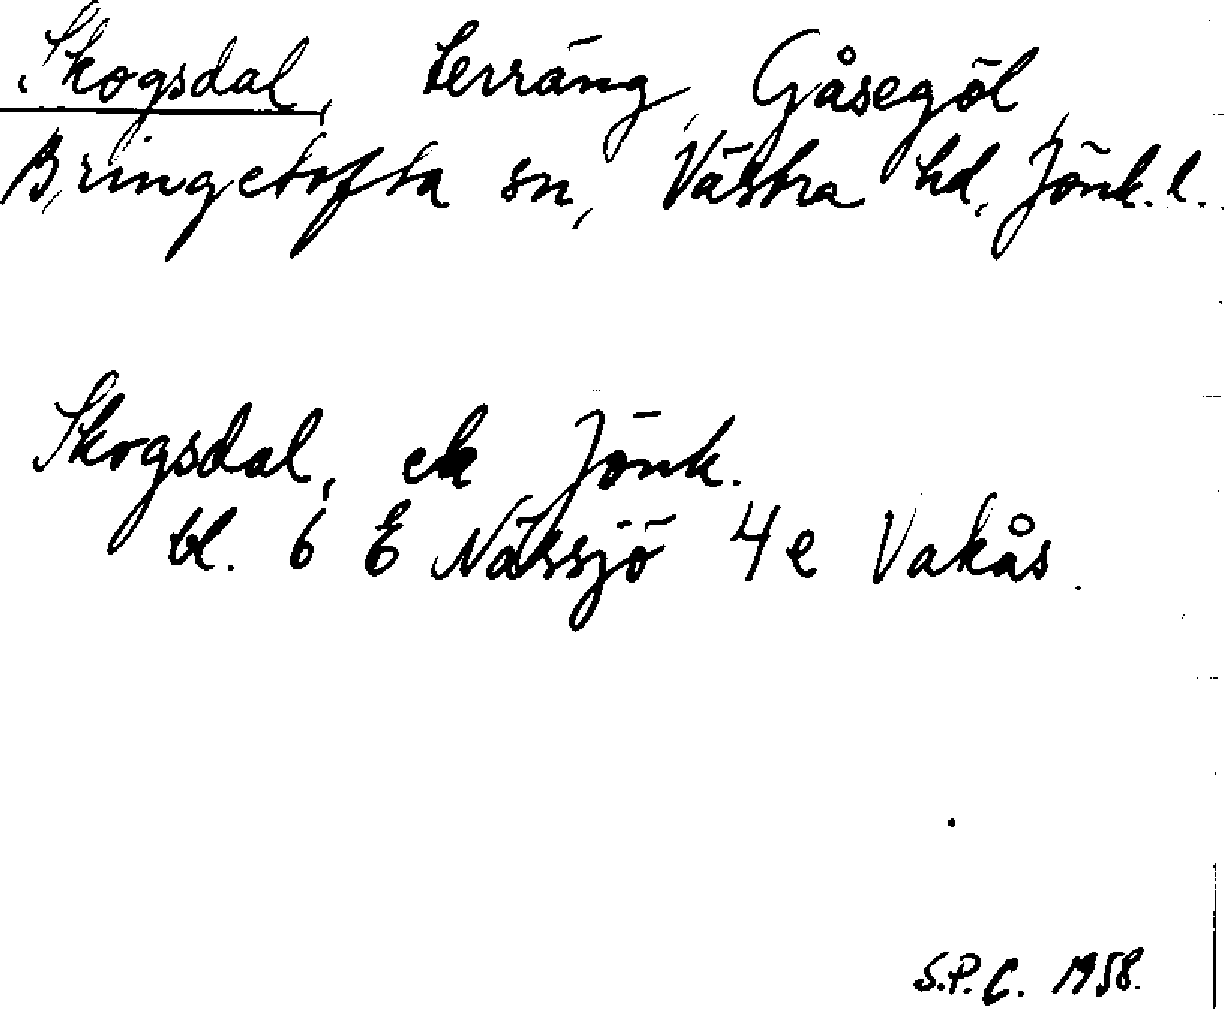 Skogsdal, terräng, Gåsegöl,
Bringetofta sn, Västra hd, Jönk. l.
Skogsdal, ek Jönk.
bl. 6 E Nässjö 4 e Vakås.
S.P.C. 1958.